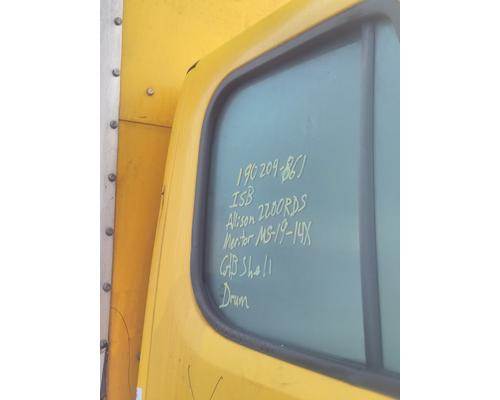 190209-861
ISB
Allison 2200RDS
Meritor MS-19-14X
CAB Shell
Drum